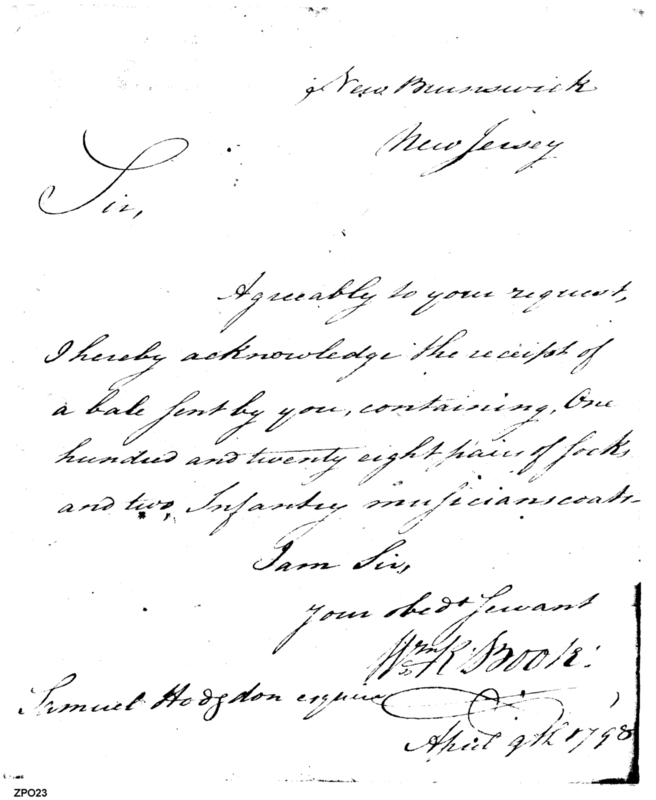 New Brunswick
New Jersey
Sir,
Agreeably to your request,
I hereby acknowledge the receipt of
a bale sent by you, containing, One
hundred and twenty eight pair of socks
and two, Infantry musicians coats-
I am Sir,
your obedt Servant
Wm R. Boote.
Samuel Hodgdon esquire
April 9th 1798
ZPO23